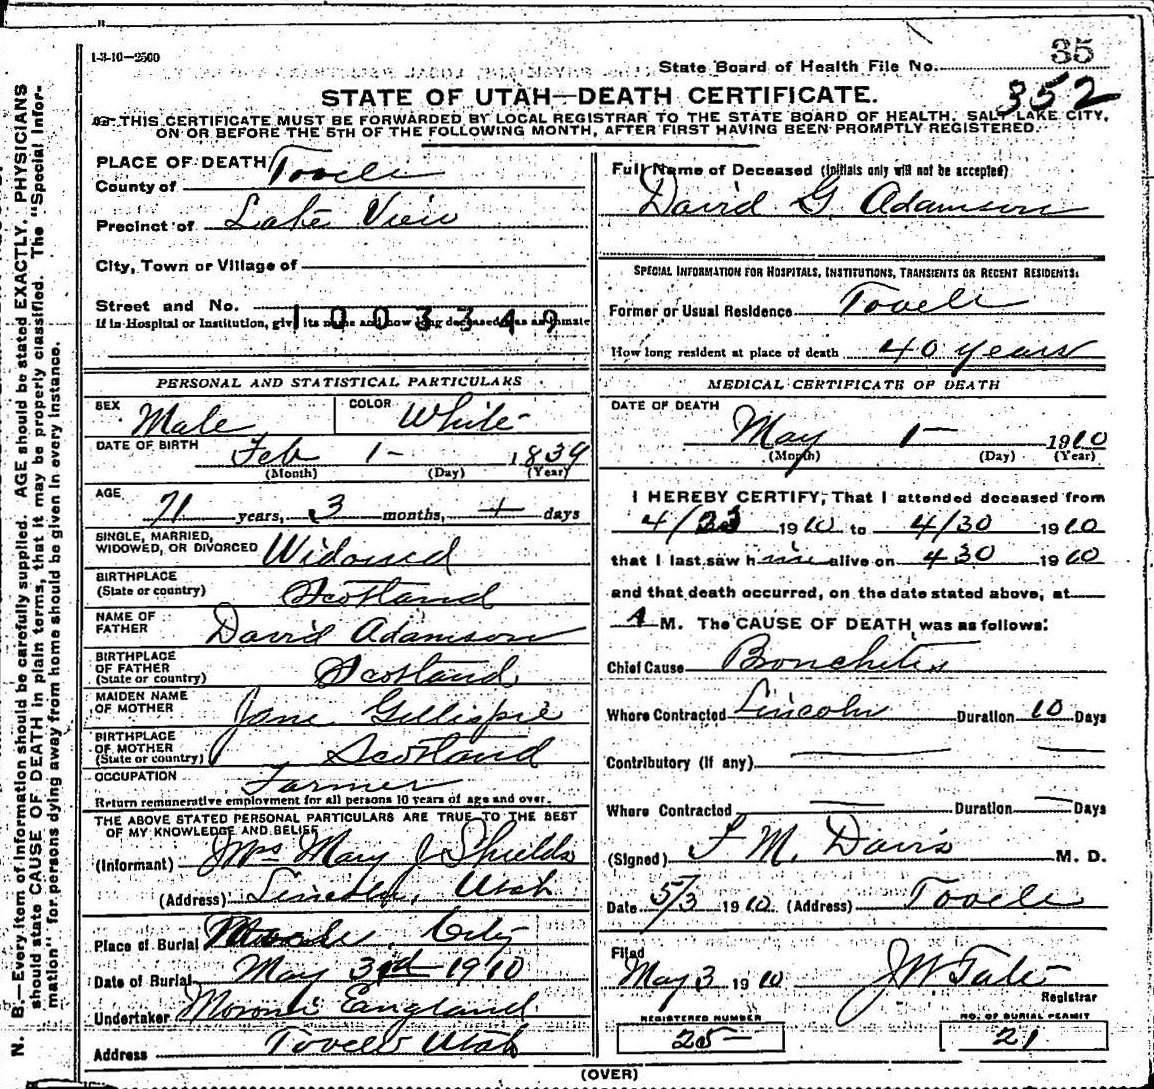 1-3-10—2500
State Board of Health File No. 35
352
STATE OF UTAH—DEATH CERTIFICATE.
THIS CERTIFICATE MUST BE FORWARDED BY LOCAL REGISTRAR TO THE STATE BOARD OF HEALTH, SALT LAKE CITY,
ON OR BEFORE THE 5TH OF THE FOLLOWING MONTH, AFTER FIRST HAVING BEEN PROMPTLY REGISTERED.
N. B.—Every item of information should be carefully supplied. AGE should be stated EXACTLY. PHYSICIANS
should state CAUSE OF DEATH in plain terms, that it may be properly classified. The "Special Infor-
mation" for persons dying away from home should be given in every instance.
PLACE OF DEATH
County of Tooele
Precinct of Lake View
City, Town or Village of
Street and No.
1003349
If in Hospital or Institution, give its name and how long deceased was an inmate
PERSONAL AND STATISTICAL PARTICULARS
SEX Male COLOR White
DATE OF BIRTH Feb 1 - 1839
(Month) (Day) (Year)
AGE 71 years, 3 months, + days
SINGLE, MARRIED,
WIDOWED, OR DIVORCED Widowed
BIRTHPLACE
(State or country) Scotland
NAME OF
FATHER David Adamson
BIRTHPLACE
OF FATHER
(State or country) Scotland
MAIDEN NAME
OF MOTHER Jane Gillispie
BIRTHPLACE
OF MOTHER
(State or country) Scotland
OCCUPATION Farmer
Return remunerative employment for all persons 10 years of age and over.
THE ABOVE STATED PERSONAL PARTICULARS ARE TRUE TO THE BEST
OF MY KNOWLEDGE AND BELIEF
(Informant) Mrs Mary J Shields
(Address) Lincoln, Utah
Place of Burial Tooele City
Date of Burial May 3rd 1910
Undertaker Moroni England
Address Tooele Utah
Full Name of Deceased (Initials only will not be accepted)
David G Adamson
SPECIAL INFORMATION FOR HOSPITALS, INSTITUTIONS, TRANSIENTS OR RECENT RESIDENTS:
Former or Usual Residence Tooele
How long resident at place of death 40 years
MEDICAL CERTIFICATE OF DEATH
DATE OF DEATH
May 1 - 1910
(Month) (Day) (Year)
I HEREBY CERTIFY, That I attended deceased from
4/23 1910 to 4/30 1910
that I last saw him alive on 430 1910
and that death occurred, on the date stated above, at
A M. The CAUSE OF DEATH was as follows:
Chief Cause Bronchitis
Where Contracted Lincoln Duration 10 Days
Contributory (if any)
Where Contracted Duration Days
(Signed) F M. Davis M. D.
Date 5/3 1910 (Address) Tooele
Filed
May 3 1910 J W Tate
Registrar
REGISTERED NUMBER
25 -
NO. OF BURIAL PERMIT
21
(OVER)